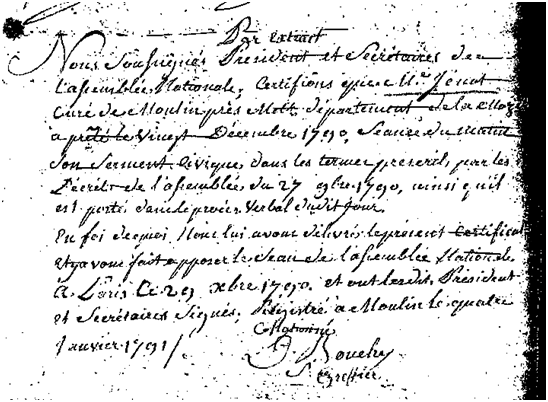 Par extrait
Nous Soussignés President et Secrétaires de
l'assemblée Nationale, Certifions que Mr. Jénot
Curé de Moulin près Metz département de la Moz
a prêté le vingt Décembre 1790, Séance du matin
Son Serment Civique, dans les termes prescrits par les
Décrets de l'assemblée du 27 9bre. 1790, ainsi qu'il
est porté dans le procès Verbal dudit Jour.
En foi de quoi Nous lui avons délivré le présent Certificat
et y avons fait apposer le Sceau de l'assemblée Nationale
A Paris Ce 29 xbre 1790. et ont lesdits Président
et Secrétaires Signés, Registré a Moulin le quatre
Janvier 1791 /. Collationné
Bouchy
S. Greffier